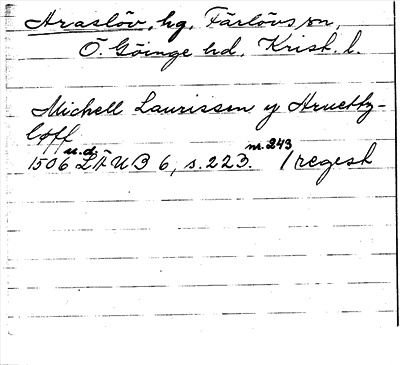 Araslöv, hg, Färlövs sn,
Ö. Göinge hd, Krist. l.
Michell Laurissen y Aruetz-
loff
1506 u.d. LÄUB 6, s. 223. nr. 243 / regest